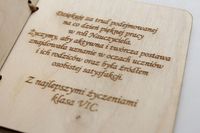 Dziękuję za trud podejmowanej
na co dzień pięknej pracy
w roli Nauczyciela.
Życzymy, aby aktywna i twórcza postawa
znajdowała uznanie w oczach uczniów
i ich rodziców oraz była źródłem
osobistej satysfakcji.
Z najlepszymi życzeniami
klasa VIC.